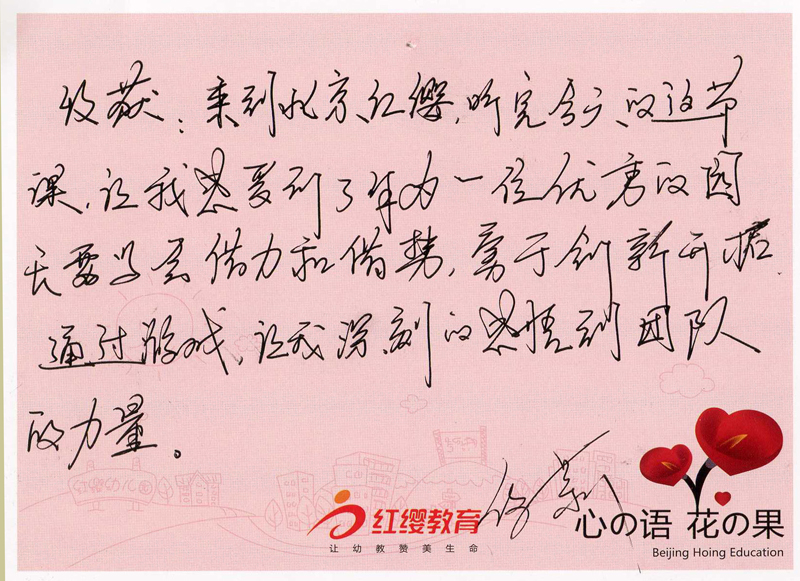 收获：来到北京红缨，听完今天的这节
课，让我感受到了作为一位优秀的园
长要学会借力和借势，勇于创新开拓.
通过游戏，让我深刻的感悟到团队
的力量。
红缨教育
让幼教赞美生命
心の语 花の果
Beijing Hoing Education